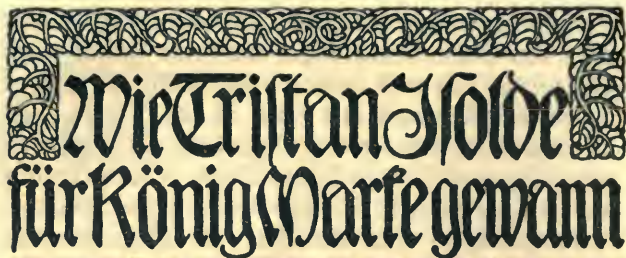 Wie Tristan Isolde
für König Marke gewann